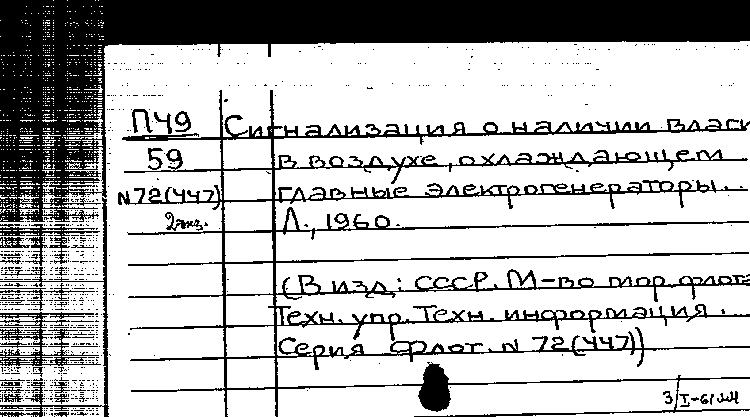 П49 Сигнализация о наличии влаги
59 в воздухе, охлаждающем
N72(447) главные электрогенераторы..
2экз. Л., 1960.
(В изд: СССР. М-во мор. флота
Техн. упр. Техн. информация.
Серия флот. N 72(447))
3/I-61